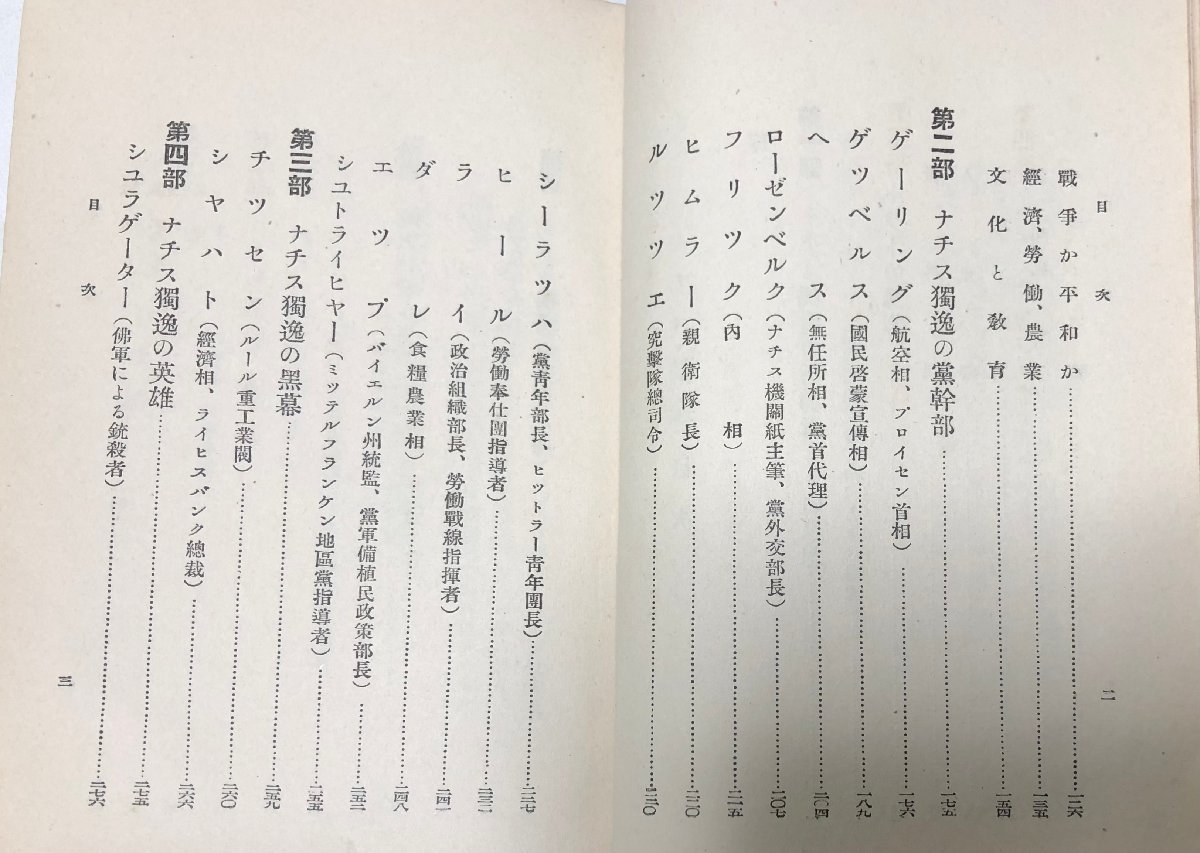 目次
戰爭か平和か……一二六
經濟、勞働、農業……一三五
文化と敎育……一五四
第二部 ナチス獨逸の黨幹部……一七五
ゲーリング（航空相、プロイセン首相）……一七六
ゲツベルス（國民啓蒙宣傳相）……一八九
ヘス（無任所相、黨首代理）……二〇四
ローゼンベルク（ナチス機關紙主筆、黨外交部長）……二〇七
フリツク（內相）……二一五
ヒムラー（親衛隊長）……二二〇
ルツツエ（突擊隊總司令）……二三〇
二
シーラツハ（黨靑年部長、ヒツトラー靑年團長）……二二七
ヒールル（勞働奉仕團指導者）……二三二
ライ（政治組織部長、勞働戰線指揮者）……二四一
ダレ（食糧農業相）……二四八
エツプ（バイエルン州統監、黨軍備植民政策部長）……二五二
シユトライヒヤー（ミツテルフランケン地區黨指導者）……二五五
第三部 ナチス獨逸の黑幕……二五九
チツセン（ルール重工業閥）……二六〇
シヤハト（經濟相、ライヒスバンク總裁）……二六六
第四部 ナチス獨逸の英雄……二七五
シユラゲーター（佛軍による銃殺者）……二七六
目次
三